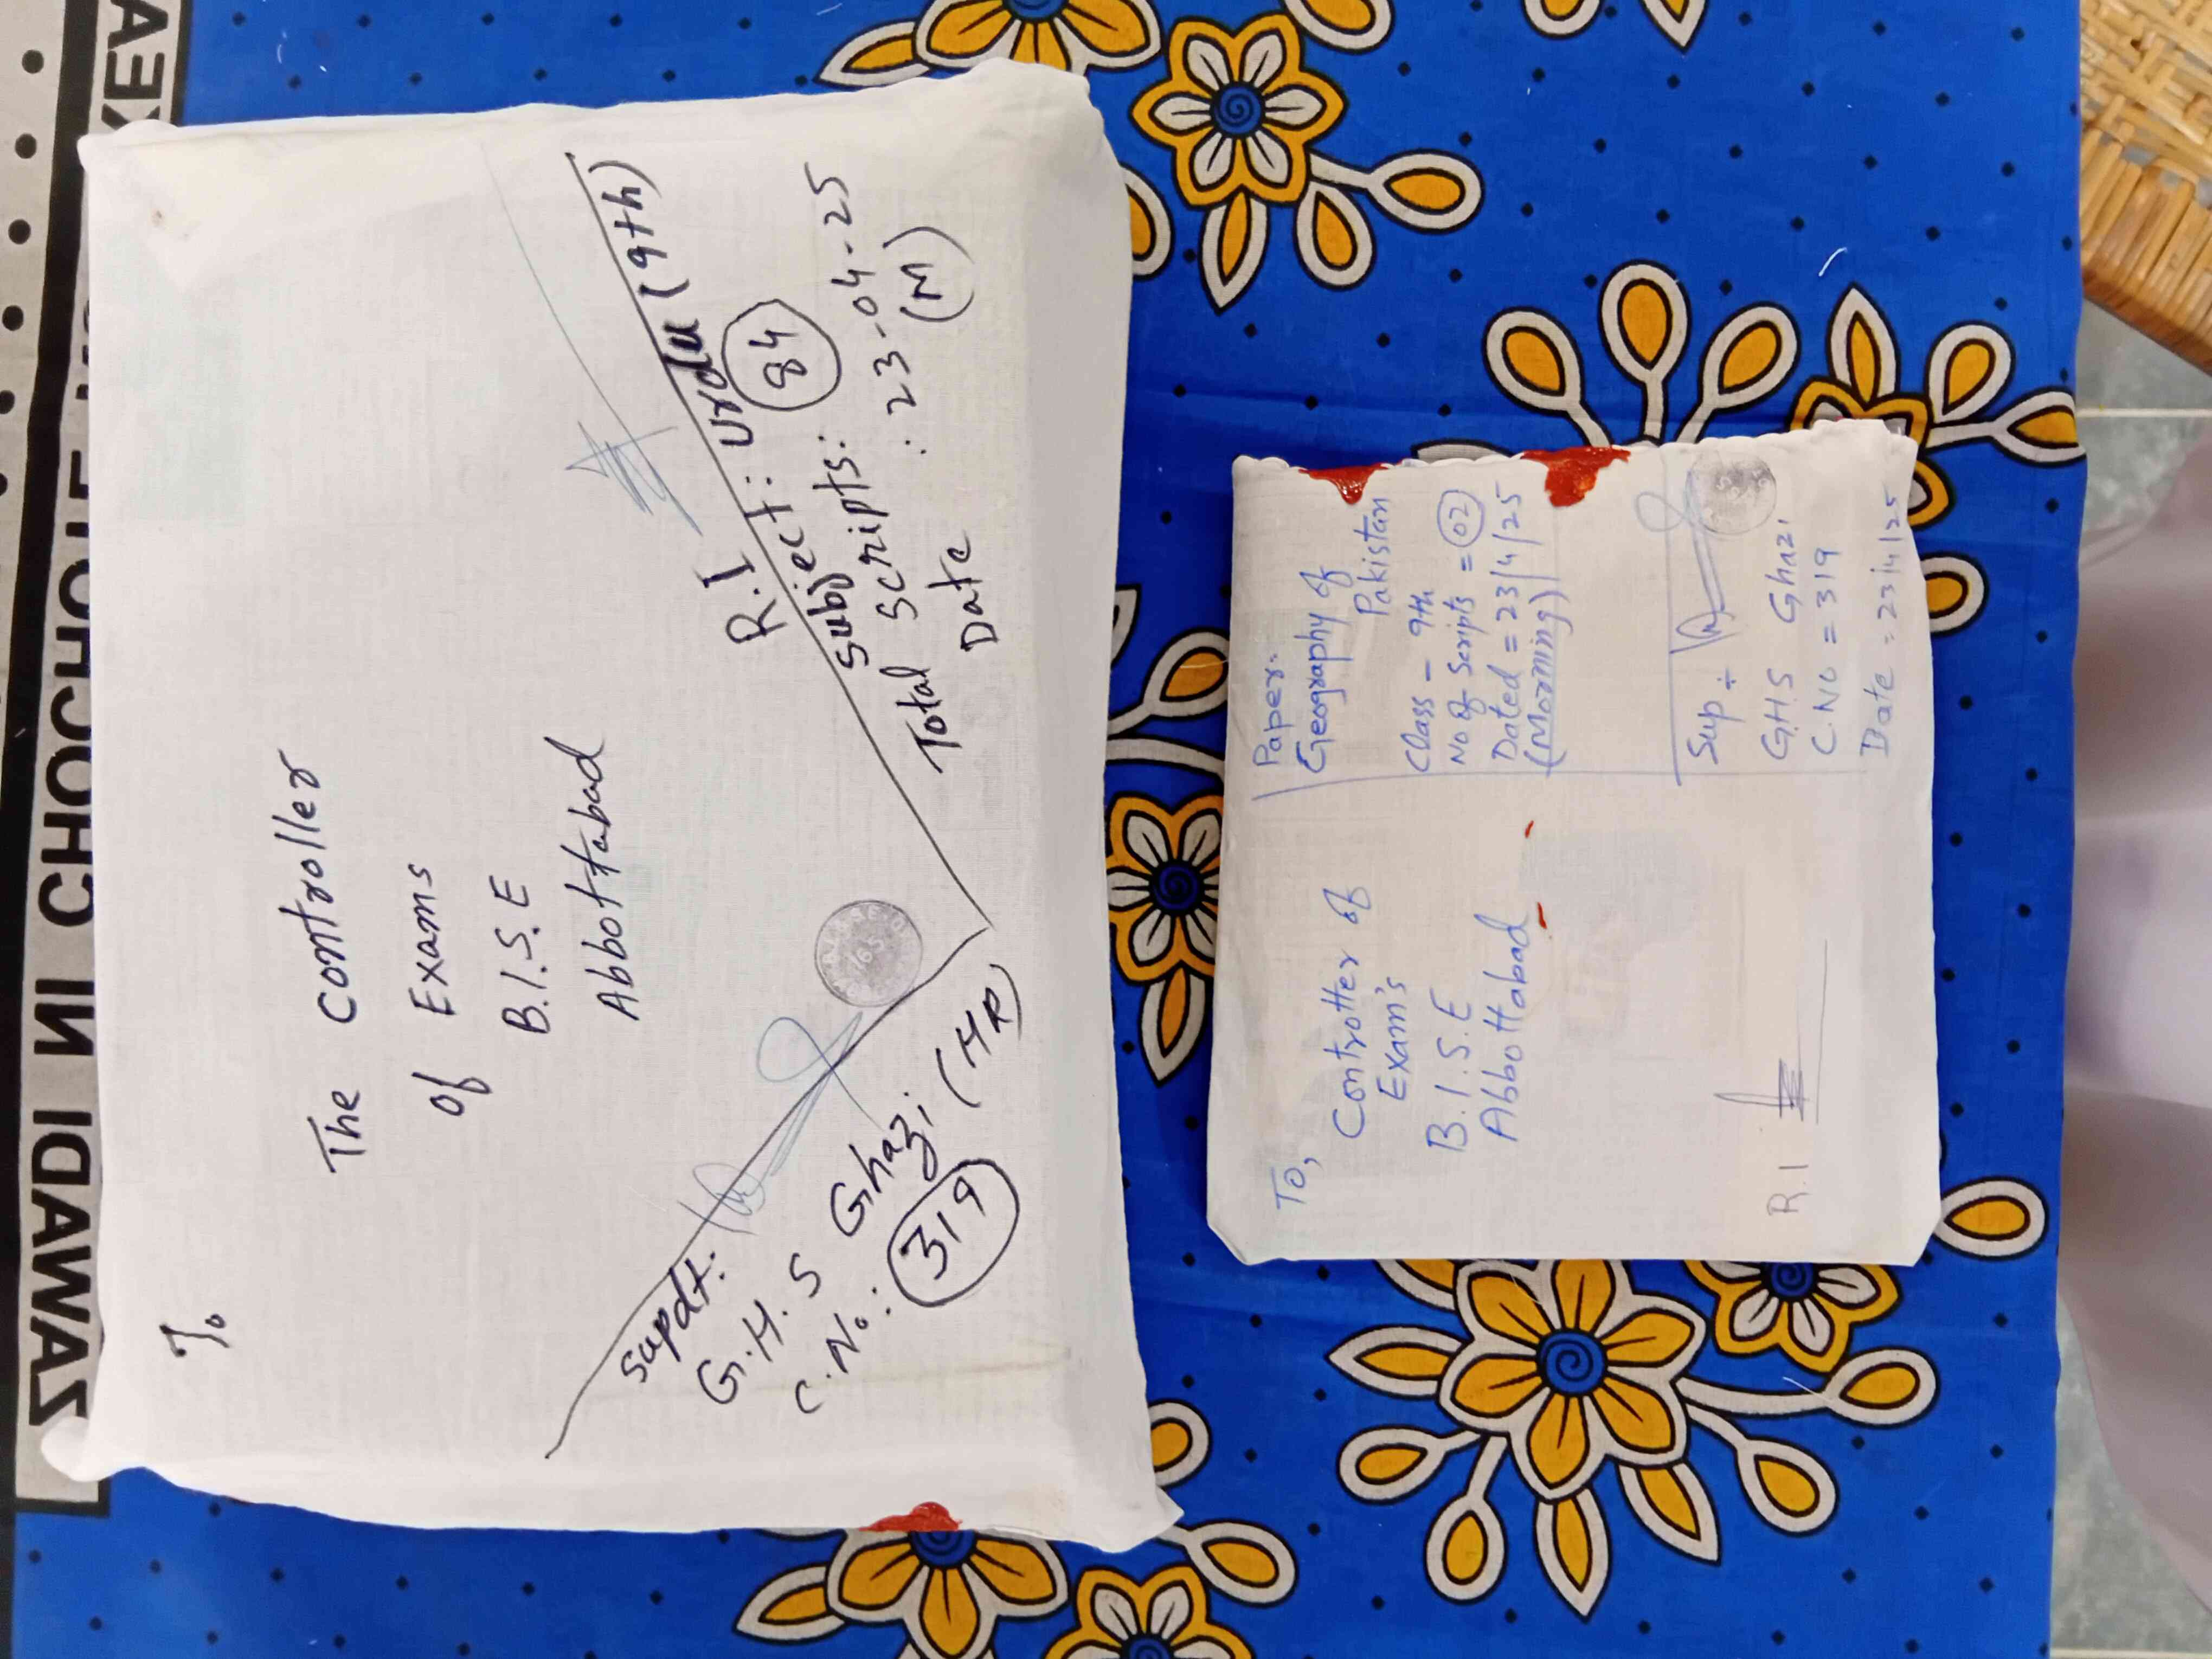 To
The Controller
of Exams
B.I.S.E
Abbottabad
R.I
Subject: Urdu (9th)
Total Scripts: 84
Date : 23-04-25
(M)
Supdt:
G.H.S Ghazi (HR)
C.No.: 319
To,
Controller of
Exam's
B.I.S.E
Abbottabad
R.I
Paper:-
Geography of
Pakistan
Class - 9th
No of Scripts = 02
Dated = 23/4/25
(Morning)
Sup ÷
G.H.S Ghazi
C.No = 319
Date : 23/4/25
ZAWADI NI CHOCHOTE